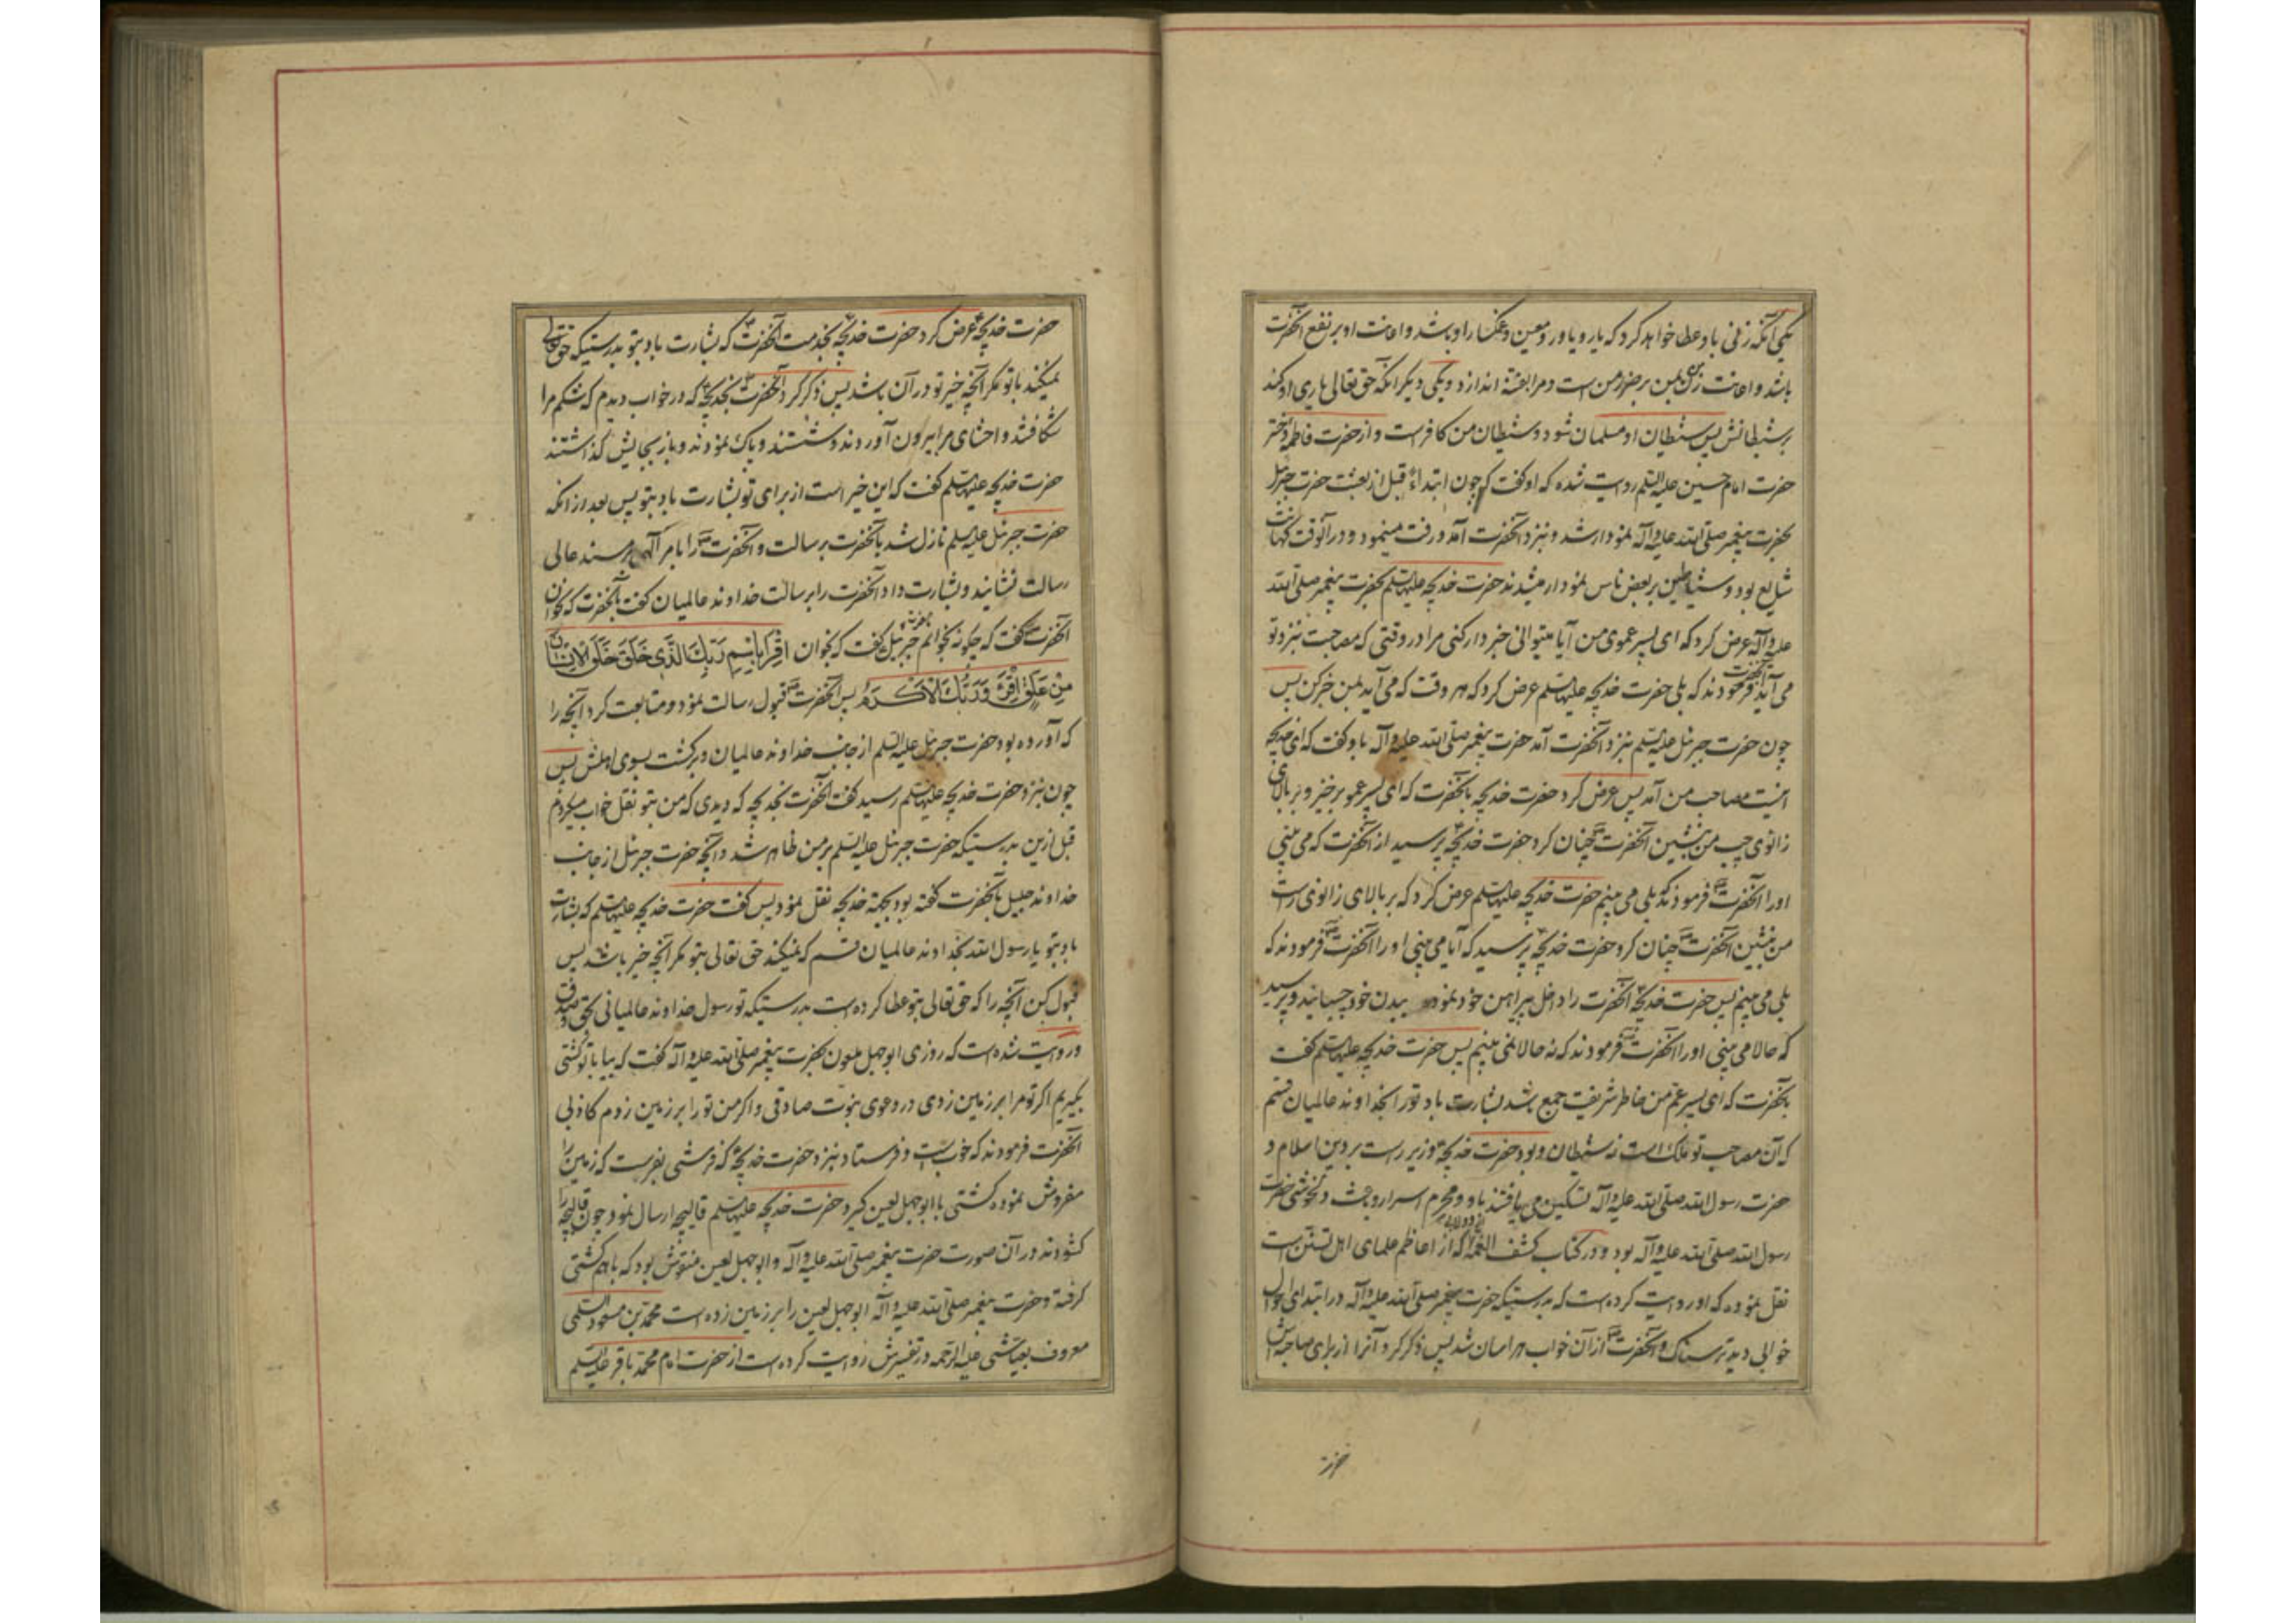 یکی آنکه زنی باو عطا خواهد کرد که یار و یاور و معین و غمگسار او باشد و اعانت او بر نفع آنحضرت
باشد و اعانت زن من بر ضرر من است و مرا بفتنه اندازد و یکی دیگر آنکه حق تعالی یاری او کند
بر شیطانش پس شیطان او مسلمان شود و شیطان من کافر است و از حضرت فاطمه دختر
حضرت امام حسین علیه السلم روایت شده که او گفت که چون ابتداء قبل از بعثت حضرت جبرئیل
بحضرت پیغمبر صلی الله علیه و آله نمودار شد و نزد آنحضرت آمد و رفت مینمود و در آنوقت کهانت
شایع بود و شیاطین بر بعض ناس نمودار میشدند حضرت خدیجه علیها سلم بحضرت پیغمبر صلی الله
علیه و آله عرض کرد که ای پسر عموی من آیا میتوانی خبردار کنی مرا در وقتی که مصاحبت نزد تو
می آید آنحضرت فرمودند که بلی حضرت خدیجه علیها سلم عرض کرد که هر وقت که می آید بمن خبر کن پس
چون حضرت جبرئیل علیه سلم نزد آنحضرت آمد حضرت پیغمبر صلی الله علیه و آله باو گفت که ای خدیجه
اینست مصاحب من آمد پس عرض کرد حضرت خدیجه بآنحضرت که ای پسر عمو برخیز و بر بالای
زانوی چپ من بنشین آنحضرت ص چنان کرد حضرت خدیجه پرسید از آنحضرت که می بینی
او را آنحضرت ص فرمودند که بلی می بینم حضرت خدیجه علیها سلم عرض کرد که بر بالای زانوی راست
من بنشین آنحضرت ص چنان کرد حضرت خدیجه پرسید که آیا می بینی او را آنحضرت ص فرمودند که
بلی می بینم پس حضرت خدیجه آنحضرت را داخل پیراهن خود نموده ببدن خود چسبانید و پرسید
که حالا می بینی او را آنحضرت ص فرمودند که نه حالا نمی بینم پس حضرت خدیجه علیها سلم گفت
بآنحضرت که ای پسر عم من خاطر شریفت جمع باشد بشارت باد تو را بخداوند عالمیان قسم
که آن مصاحب تو ملک است نه شیطان و بود حضرت خدیجه وزیر راست بر دین اسلام و
حضرت رسول الله صلی الله علیه و آله تسکین می یافتند باو و محرم اسرار و باعث دلخوشی حضرت
رسول الله صلی الله علیه و آله بود و در کتاب کشف الغمه که از اعاظم علمای اهل تسنن است
نقل نموده که او روایت کرده است که بدرستیکه حضرت پیغمبر صلی الله علیه و آله در ابتدای احوال
خوابی دید ترسناک و آنحضرت ص از آن خواب هراسان شد پس ذکر کرد آنرا از برای صاحبه اش
حضرت
حضرت خدیجه عرض کرد حضرت خدیجه بخدمت آنحضرت که بشارت باد بتو بدرستیکه حق تعالی
نمیکند با تو مگر آنچه خیر تو در آن باشد پس ذکر کرد آنحضرت ص بخدیجه که در خواب دیدم که شکم مرا
شکافتند و احشای مرا بیرون آوردند و شستند و پاک نمودند و باز بجایش گذاشتند
حضرت خدیجه علیها سلم گفت که این خیر است از برای تو بشارت باد بتو پس بعد از آنکه
حضرت جبرئیل علیه سلم نازل شد بآنحضرت برسالت و آنحضرت ص را بامر آلهی بر مسند عالی
رسالت نشانید و بشارت داد آنحضرت را برسالت خداوند عالمیان گفت بآنحضرت که بخوان
آنحضرت گفت که چگونه بخوانم حضرت جبرئیل گفت که بخوان اقرأ باسم ربك الذی خلق خلق الانسان
من علق اقرأ و ربك الاكرم پس آنحضرت ص قبول رسالت نمود و متابعت کرد آنچه را
که آورده بود حضرت جبرئیل علیه السلم از جانب خداوند عالمیان و برگشت بسوی اهلش پس
چون نزد حضرت خدیجه علیها سلم رسید گفت آنحضرت بخدیجه که دیدی که من بتو نقل خواب میکردم
قبل ازین بدرستیکه حضرت جبرئیل علیه السلم بر من ظاهر شد و آنچه حضرت جبرئیل از جانب
خداوند جلیل بآنحضرت گفته بود بجهة خدیجه نقل نمود پس گفت حضرت خدیجه علیها سلم که بشارت
باد بتو یا رسول الله بخداوند عالمیان قسم که نمیکند حق تعالی بتو مگر آنچه خیر باشد پس
قبول کن آنچه را که حق تعالی بتو عطا کرده است بدرستیکه تو رسول خداوند عالمیانی بحق و صدق
و روایت شده است که روزی ابوجهل ملعون بحضرت پیغمبر صلی الله علیه و آله گفت که بیا با تو کشتی
بگیریم اگر تو مرا بر زمین زدی در دعوی نبوت صادقی و اگر من تو را بر زمین زدم کاذبی
آنحضرت فرمودند که خوبست و فرستاد نزد حضرت خدیجه که فرشی بفرست که زمین را
مفروش نموده کشتی با ابوجهل لعین گیرد حضرت خدیجه علیها سلم قالیچه ارسال نمود چون قالیچه را
گشودند در آن صورت حضرت پیغمبر صلی الله علیه و آله و ابوجهل لعین منقوش بود که با هم کشتی
گرفته و حضرت پیغمبر صلی الله علیه و آله ابوجهل لعین را بر زمین زده است محمد بن مسعود السلمی
معروف بعیاشی علیه الرحمه در تفسیرش روایت کرده است از حضرت امام محمد باقر علیه السلم